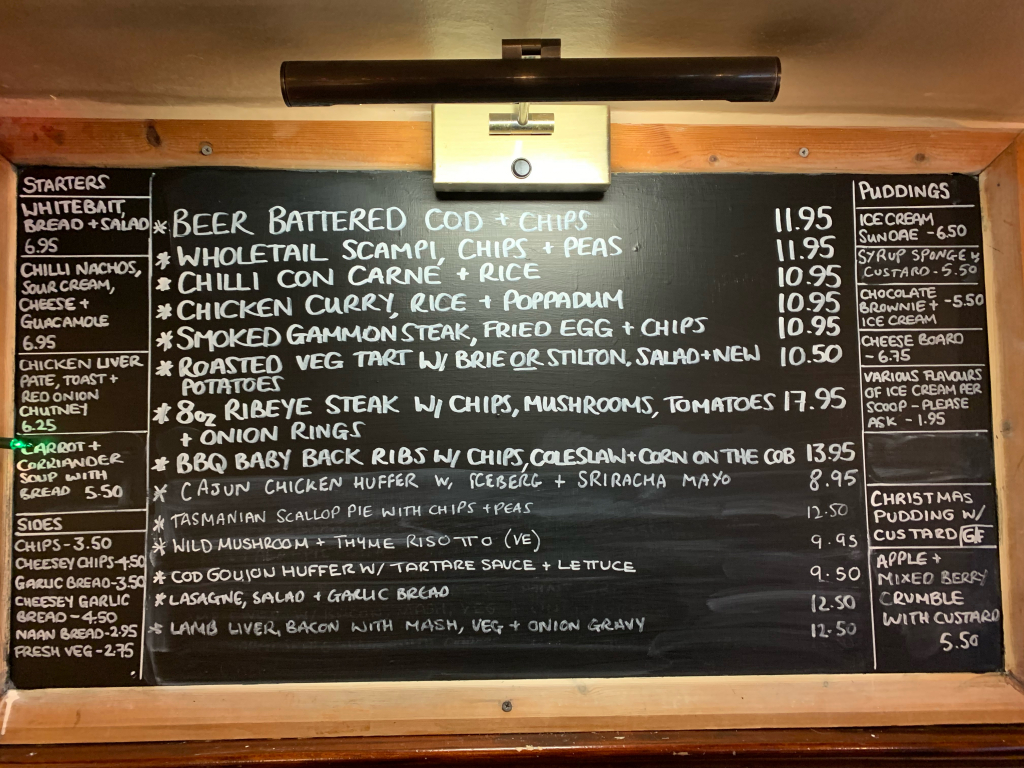 STARTERS
WHITEBAIT,
BREAD + SALAD
6.95
CHILLI NACHOS,
SOUR CREAM,
CHEESE +
GUACAMOLE
6.95
CHICKEN LIVER
PATE, TOAST +
RED ONION
CHUTNEY
6.25
CARROT +
CORRIANDER
SOUP WITH
BREAD 5.50
SIDES
CHIPS - 3.50
CHEESEY CHIPS - 4.50
GARLIC BREAD - 3.50
CHEESEY GARLIC
BREAD - 4.50
NAAN BREAD - 2.95
FRESH VEG - 2.75
* BEER BATTERED COD + CHIPS 11.95
* WHOLETAIL SCAMPI, CHIPS + PEAS 11.95
* CHILLI CON CARNE + RICE 10.95
* CHICKEN CURRY, RICE + POPPADUM 10.95
* SMOKED GAMMON STEAK, FRIED EGG + CHIPS 10.95
* ROASTED VEG TART W/ BRIE OR STILTON, SALAD + NEW 10.50
POTATOES
* 8oz RIBEYE STEAK W/ CHIPS, MUSHROOMS, TOMATOES 17.95
+ ONION RINGS
* BBQ BABY BACK RIBS W/ CHIPS, COLESLAW + CORN ON THE COB 13.95
* CAJUN CHICKEN HUFFER W, ICEBERG + SRIRACHA MAYO 8.95
* TASMANIAN SCALLOP PIE WITH CHIPS + PEAS 12.50
* WILD MUSHROOM + THYME RISOTTO (VE) 9.95
* COD GOUJON HUFFER W/ TARTARE SAUCE + LETTUCE 9.50
* LASAGNE, SALAD + GARLIC BREAD 12.50
* LAMB LIVER, BACON WITH MASH, VEG + ONION GRAVY 12.50
PUDDINGS
ICE CREAM
SUNDAE - 6.50
SYRUP SPONGE W
CUSTARD - 5.50
CHOCOLATE
BROWNIE + - 5.50
ICE CREAM
CHEESE BOARD
- 6.75
VARIOUS FLAVOURS
OF ICE CREAM PER
SCOOP - PLEASE
ASK - 1.95
CHRISTMAS
PUDDING W/
CUSTARD GF
APPLE +
MIXED BERRY
CRUMBLE
WITH CUSTARD
5.50